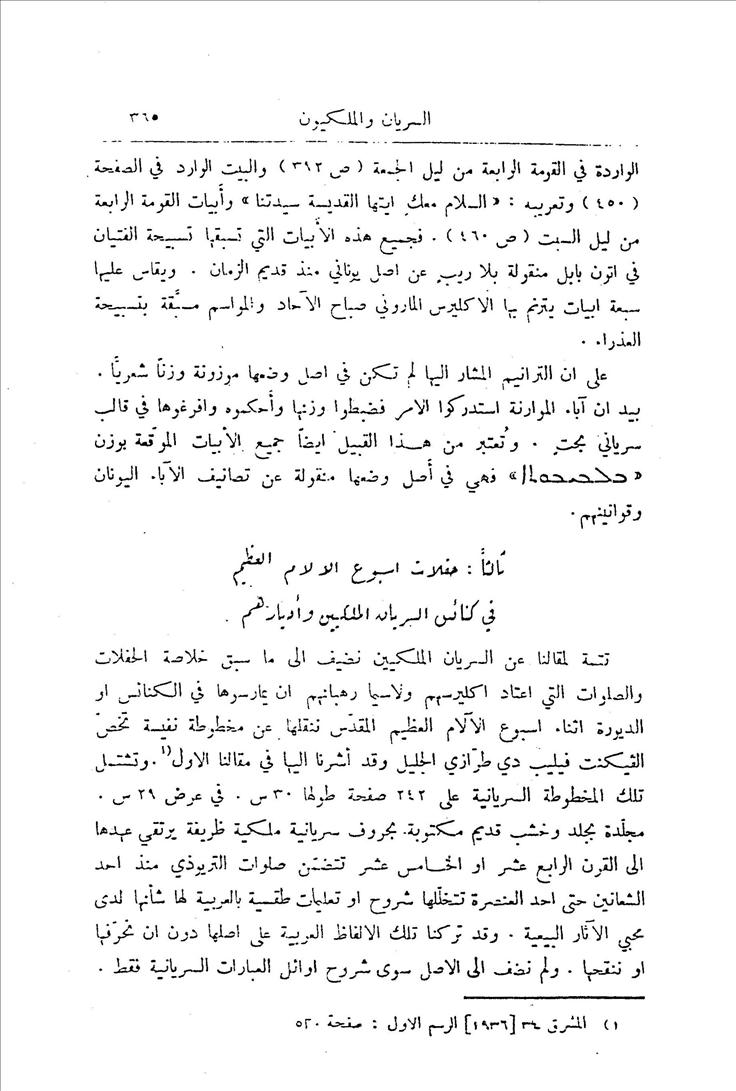 السريان والملكيون ٣٦٥
الواردة في القومة الرابعة من ليل الجمعة ( ص ٣٩٢ ) والبيت الوارد في الصفحة
( ٤٥٠ ) وتعريبه : « السلام معكِ ايتها القديسة سيدتنا » وأبيات القومة الرابعة
من ليل السبت ( ص ٤٦٠ ) . فجميع هذه الأبيات التي تسبقها تسبيحة الفتيان
في اتون بابل منقولة بلا ريبٍ عن اصل يوناني منذ قديم الزمان . ويقاس عليها
سبعة ابيات يترنم بها الاكليرس الماروني صباح الآحاد والمواسم مسبَّقة بتسبيحة
العذراء .
على ان الترانيم المشار اليها لم تكن في اصل وضعها موزونة وزنًا شعريًّا .
بيد ان آباء الموارنة استدركوا الامر فضبطوا وزنها وأحكموه وافرغوها في قالب
سرياني بحت . وتُعتبر من هذا القبيل ايضًا جميع الأبيات الموقعة بوزن
فهي في أصل وضعها منقولة عن تصانيف الآباء اليونان
وقوانينهم .
ثالثاً : حفلات اسبوع الالام العظيم
في كنائس السريان الملكيين وأديارهم .
تتمة لمقالنا عن السريان الملكيين نضيف الى ما سبق خلاصة الحفلات
والصلوات التي اعتاد اكليرسهم ولاسيما رهبانهم ان يمارسوها في الكنائس او
الديورة اثناء اسبوع الآلام العظيم المقدّس ننقلها عن مخطوطة نفيسة تخصّ
الڤيكنت فيليب دي طرّازي الجليل وقد أشرنا اليها في مقالنا الاول١) . وتشتمل
تلك المخطوطة السريانية على ٢٤٢ صفحة طولها ٣٠ س . في عرض ٢٩ س .
مجلّدة بجلد وخشب قديم مكتوبة بحروف سريانية ملكية ظريفة يرتقي عهدها
الى القرن الرابع عشر او الخامس عشر تتضمّن صلوات التريوذي منذ احد
الشعانين حتى احد العنصرة تتخلّلها شروح او تعليمات طقسية بالعربية لها شأنها لدى
محبي الآثار البيعية . وقد تركنا تلك الالفاظ العربية على اصلها دون ان نحرّفها
او ننقحها . ولم نضف الى الاصل سوى شروح اوائل العبارات السريانية فقط .
١) المشرق ٣٤ [١٩٣٦] الرسم الاول : صفحة ٥٢٠